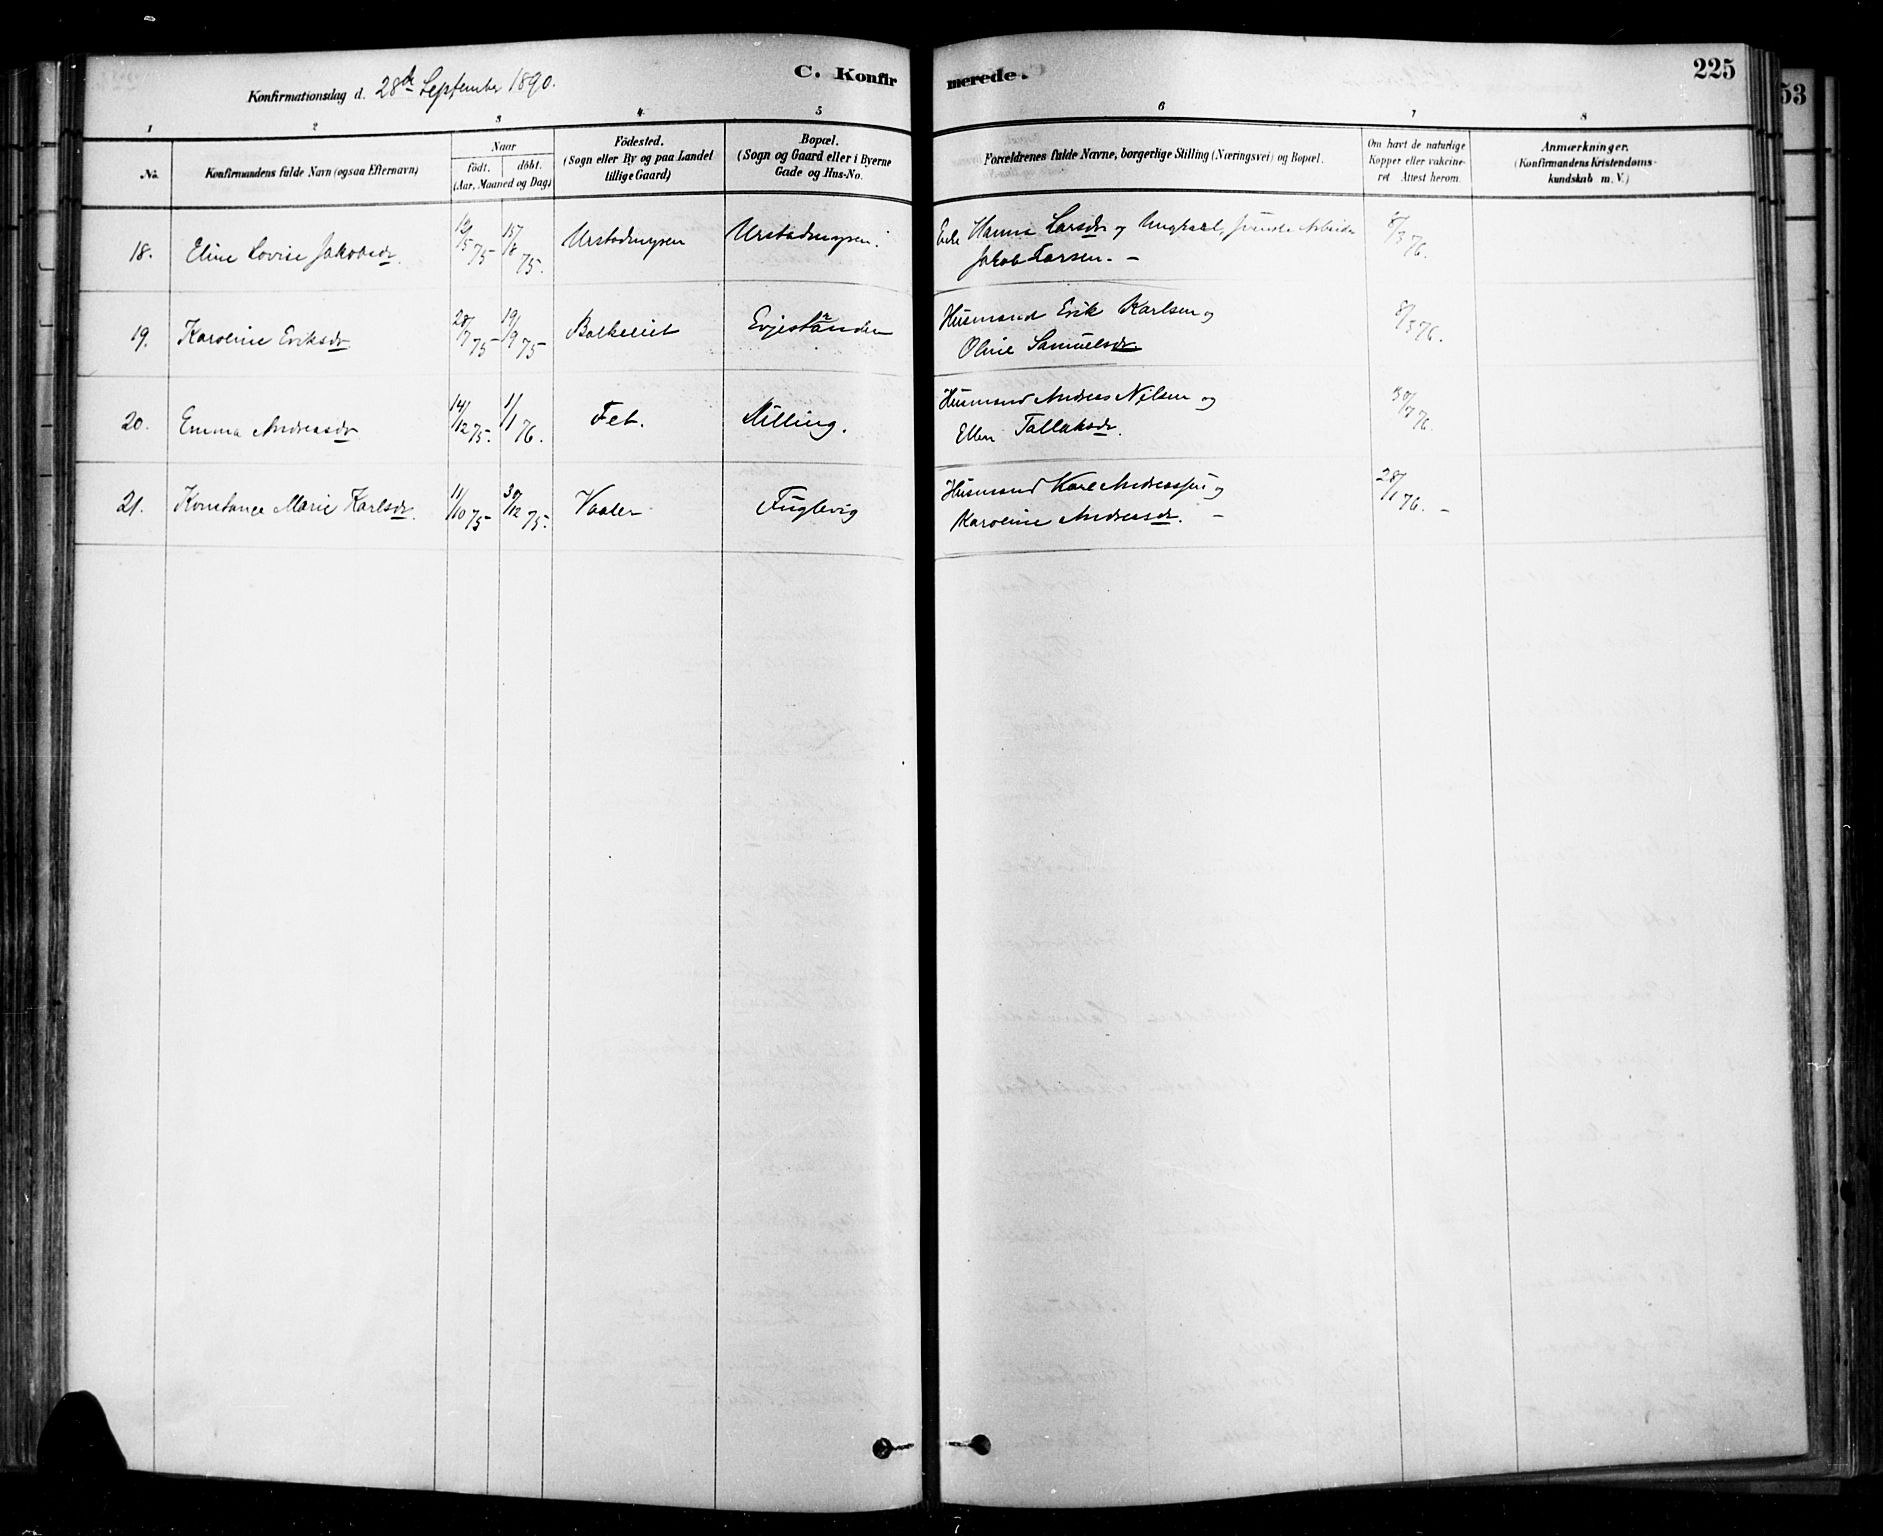 Konfirmationsdag d. 28de September 1890.
C. Konfirmerede.
225
53
1 2 3 4 5 6 7 8
No.
Konfirmandens fulde Navn (ogsaa Efternavn)
Naar
födt. döbt.
(Aar, Maaned og Dag)
Födested.
(Sogn eller By og paa Landet
tillige Gaard)
Bopæl.
(Sogn og Gaard eller i Byerne
Gade og Hus-No.
Forældrenes fulde Navne, borgerlige Stilling (Næringsvei) og Bopæl.
Om havt de naturlige
Kopper eller vakcine-
ret Attest herom.
Anmærkninger.
(Konfirmandens Kristendoms-
kundskab m. V.)
18. Eline Lovise Jakobsdr. 75 15/8 75. Urstadmysen Urstadmysen. Enke Hanna Larsdr og Ungkarl, Arbeider 8/3 76.
Jakob Larsen. –
19. Karoline Eriksdr 28/7 75 19/9 75 Evjestranden Husmand Erik Karlsen og 8/3 76.
Oline Samuelsdr.
20. Emma Andreasdr 14/12 75. 1/1 76. Fet. Killing. Husmand Andreas Nilsen og 30/7 76.
Ellen Tallaksdr.
21. Konstance Marie Karlsdr. 11/10 75 30/12 75. Vaaler Fuglevig Husmand Karl Andreassen og 28/1 76. –
Karoline Andreasdr. –